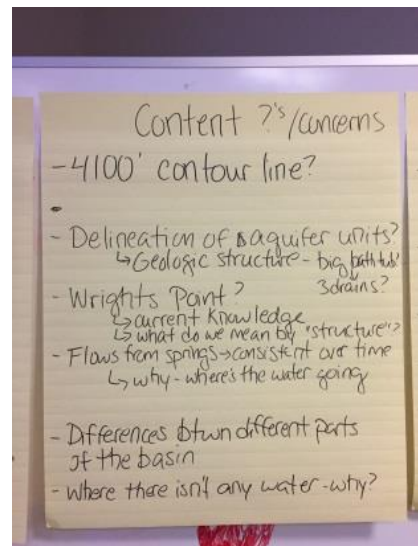 Content ?'s/concerns
- 4100' contour line?
-
- Delineation of aquifer units?
↳ Geologic structure - big bathtub?
3 drains?
- Wrights Point?
↳ current knowledge
↳ what do we mean by "structure"?
- Flows from springs → consistent over time
↳ why - where's the water going
- Differences btwn different parts
of the basin
- Where there isn't any water - why?